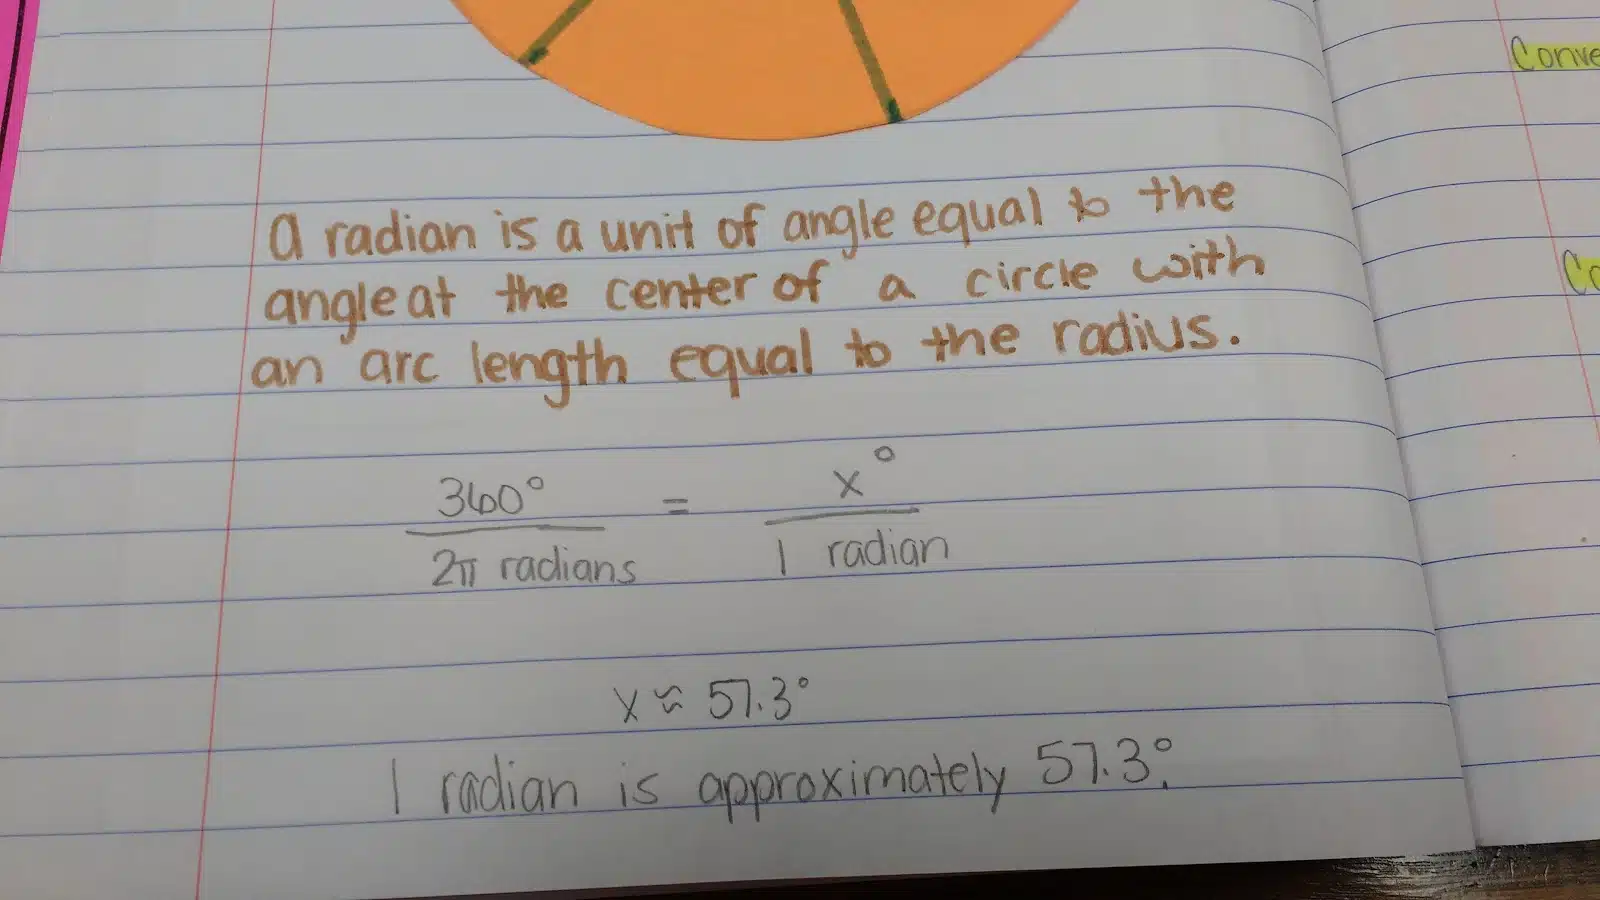 Conve
a radian is a unit of angle equal to the
angle at the center of a circle with
an arc length equal to the radius.
Co
360° = x°
2π radians 1 radian
x ≈ 57.3°
1 radian is approximately 57.3°.